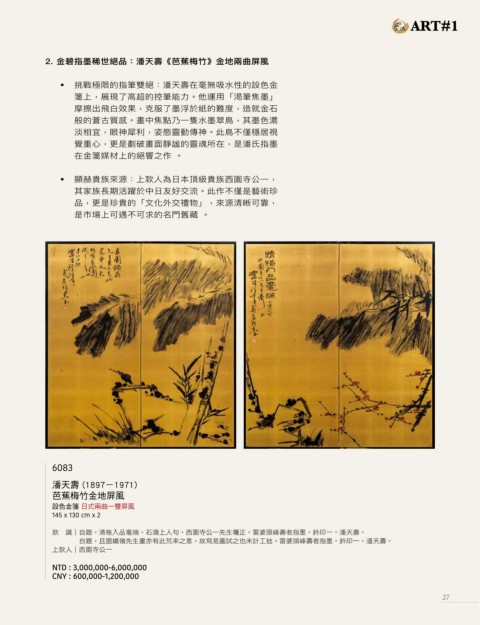 ART#1
2. 金碧指墨稀世絕品：潘天壽《芭蕉梅竹》金地兩曲屏風
• 挑戰極限的指筆雙絕：潘天壽在毫無吸水性的設色金
箋上，展現了高超的控筆能力。他運用「渴筆焦墨」
摩擦出飛白效果，克服了墨浮於紙的難度，造就金石
般的蒼古質感。畫中焦點乃一隻水墨翠鳥，其墨色濃
淡相宜，眼神犀利，姿態靈動傳神。此鳥不僅穩居視
覺重心，更是劃破畫面靜謐的靈魂所在，是潘氏指墨
在金箋媒材上的絕響之作 。
• 顯赫貴族來源：上款人為日本頂級貴族西園寺公一，
其家族長期活躍於中日友好交流。此作不僅是藝術珍
品，更是珍貴的「文化外交禮物」，來源清晰可靠，
是市場上可遇不可求的名門舊藏 。
6083
潘天壽 (1897－1971)
芭蕉梅竹金地屏風
設色金箋 日式兩曲一雙屏風
145 x 130 cm x 2
款　識｜自題。清格入品毫端。石濤上人句。西園寺公一先生囑正。雷婆頭峰壽者指墨。鈐印一。潘天壽。
自題。且園嬾儂先生畫亦有此荒率之意。故寫是圖試之也未計工拙。雷婆頭峰壽者指墨。鈐印一。潘天壽。
上款人｜西園寺公一
NTD : 3,000,000-6,000,000
CNY : 600,000-1,200,000
27